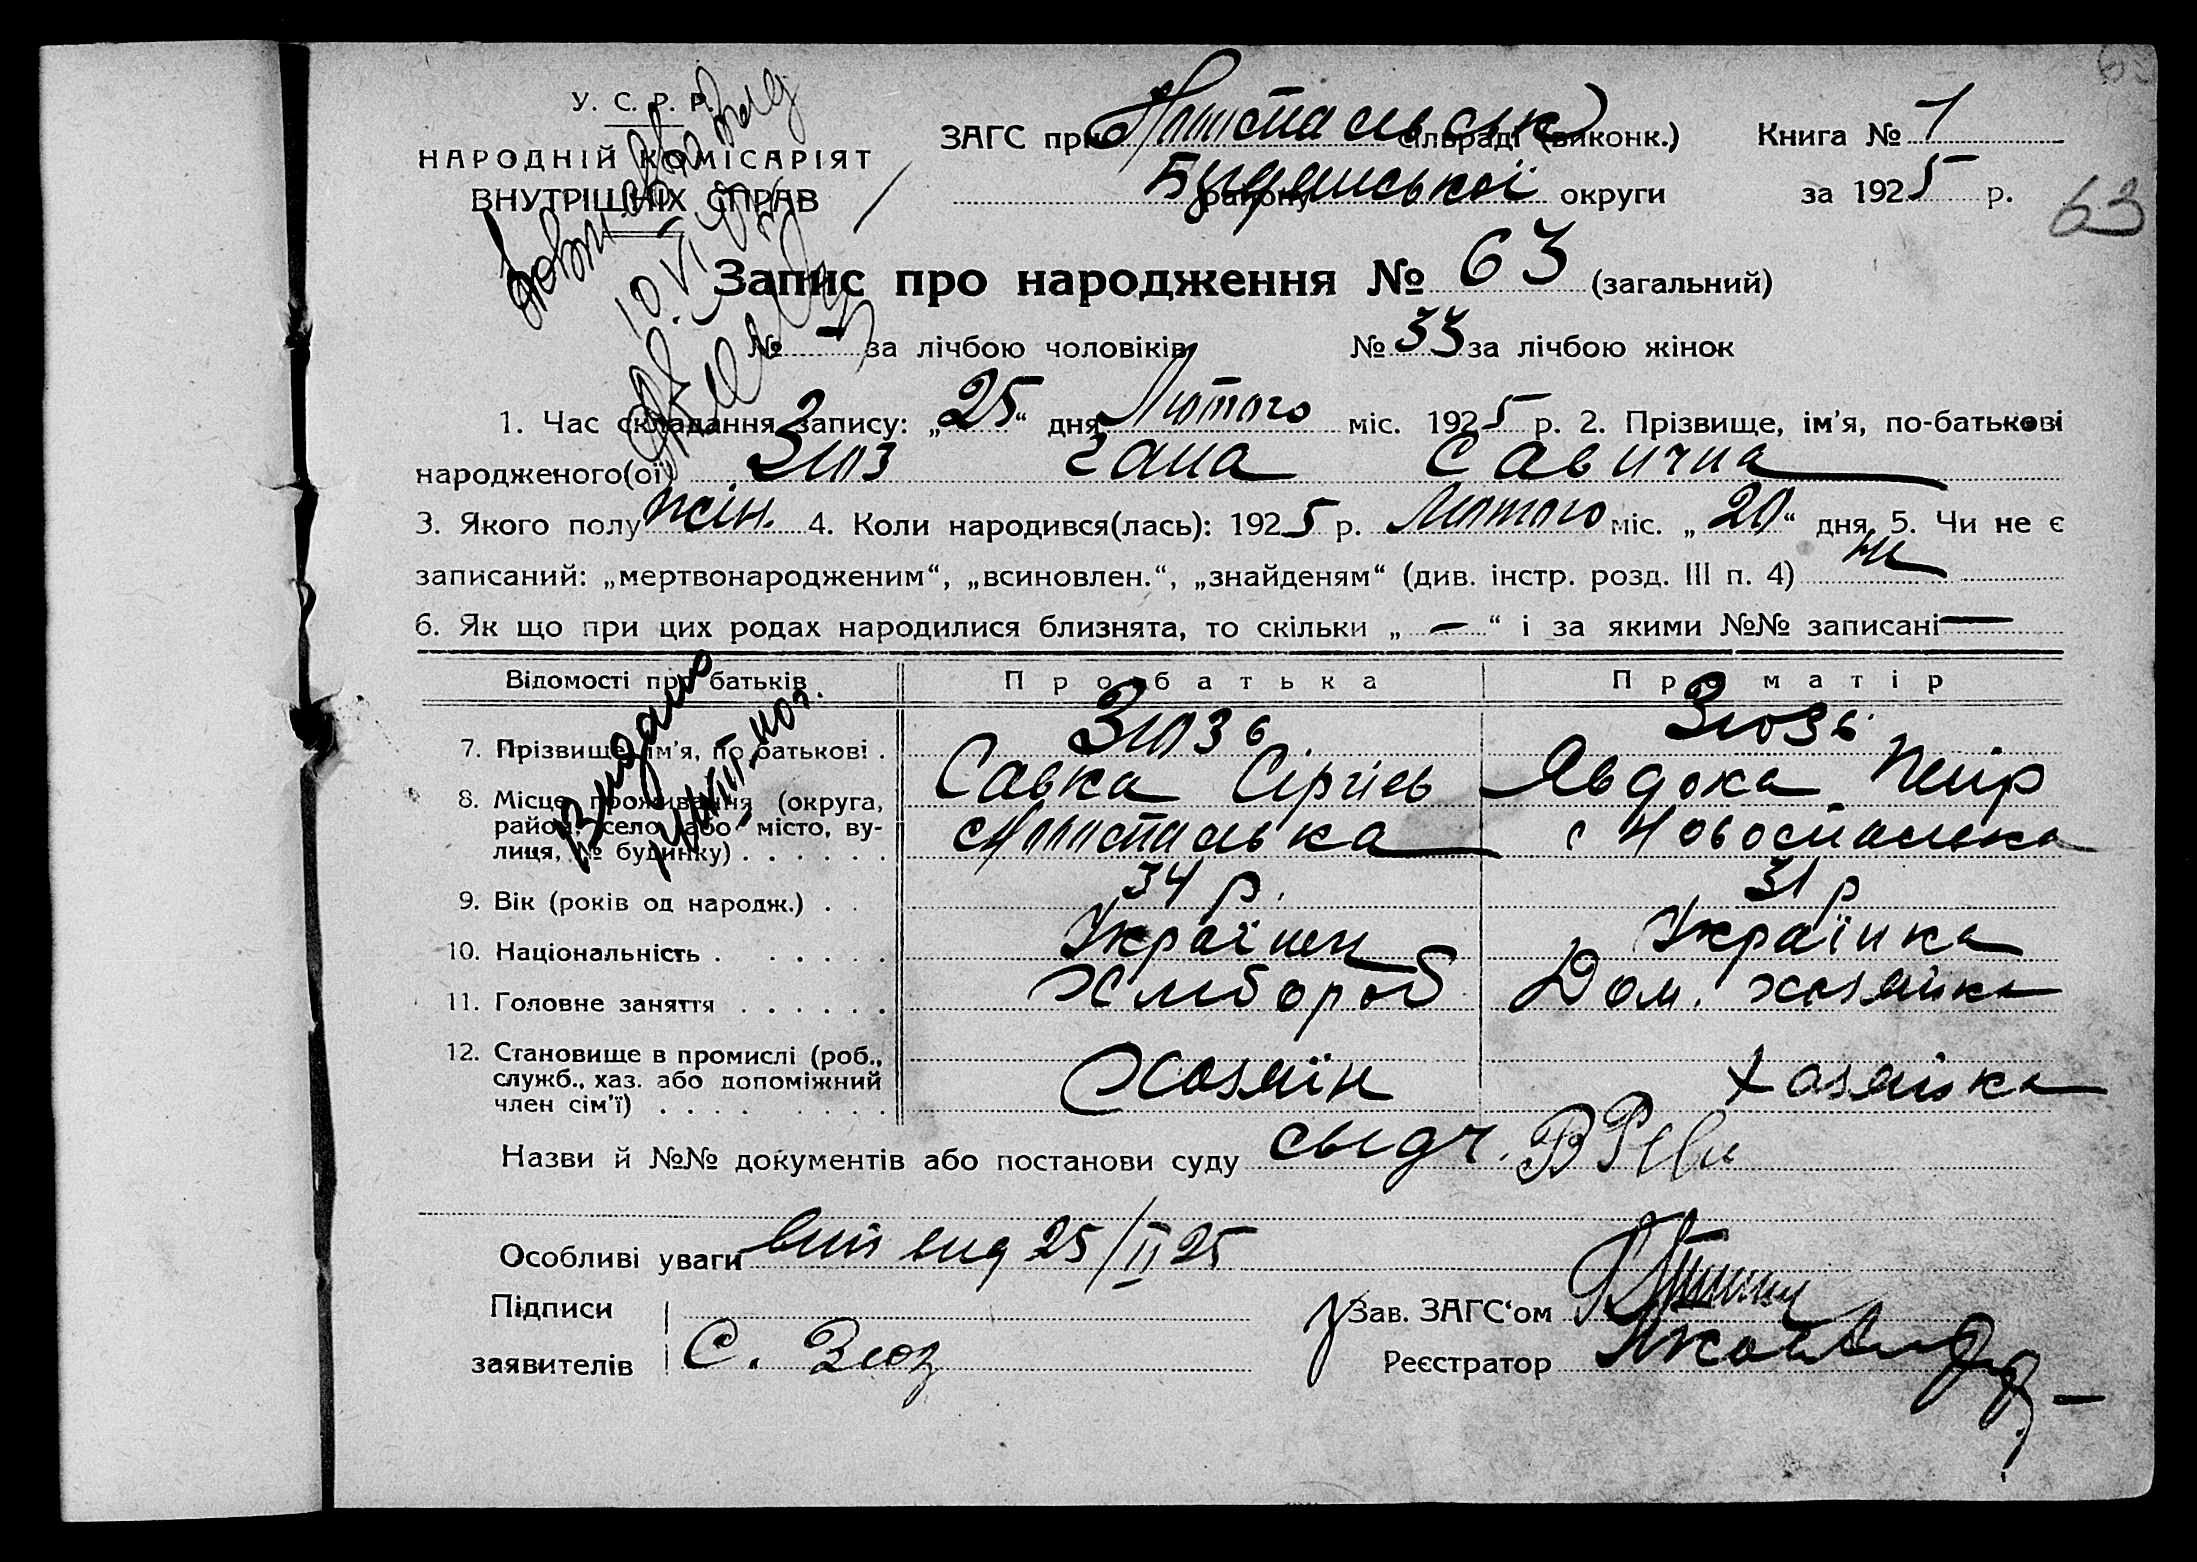 У. С. Р. Р.
НАРОДНІЙ КОМІСАРІЯТ
ВНУТРІШНІХ СПРАВ
ЗАГС при сільраді (виконк.) Книга № 1
району округи за 1925 р.
63
Запис про народження № 63 (загальний)
№ – за лічбою чоловіків № 33 за лічбою жінок
10 VI
1. Час складання запису: „25“ дня Лютого міс. 1925 р. 2. Прізвище, ім'я, по-батькові
народженого(ої) Зюз Гана Савична
3. Якого полу жін. 4. Коли народився(лась): 1925 р. Лютого міс. „20“ дня 5. Чи не є
записаний: „мертвонародженим“, „всиновлен.“, „знайденям“ (див. інстр. розд. III п. 4) ні
6. Як що при цих родах народилися близнята, то скільки „–“ і за якими №№ записані —
Відомості про батьків Про батька Про матір
Видано
7. Прізвище, ім'я, по батькові . Зюзь Зюзь
Савка Сергіев Явдоха Петр
8. Місце проживання (округа,
район, село або місто, ву-
лиця, № будинку) . . . . . .
9. Вік (років од народж.) . . 34 р. 31 р
10. Національність . . . . . . Українец Українка
11. Головне заняття . . . . . . Хлібороб Дом. хозяйка
12. Становище в промислі (роб.,
служб., хаз. або допоміжний
член сім'ї) . . . . . . . . Хозяїн хазяйка
Назви й №№ документів або постанови суду
Особливі уваги 25/II 25
Підписи Зав. ЗАГС'ом
заявителів С. Зюз Реєстратор